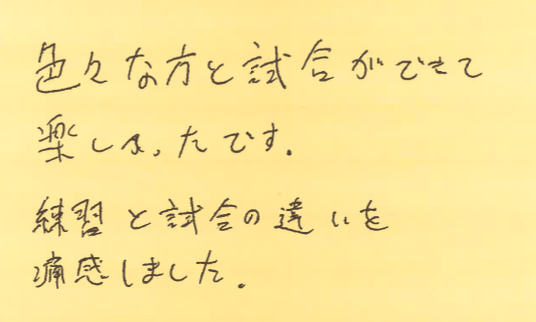 色々な方と試合ができて
楽しかったです.
練習と試合の違いを
痛感しました.